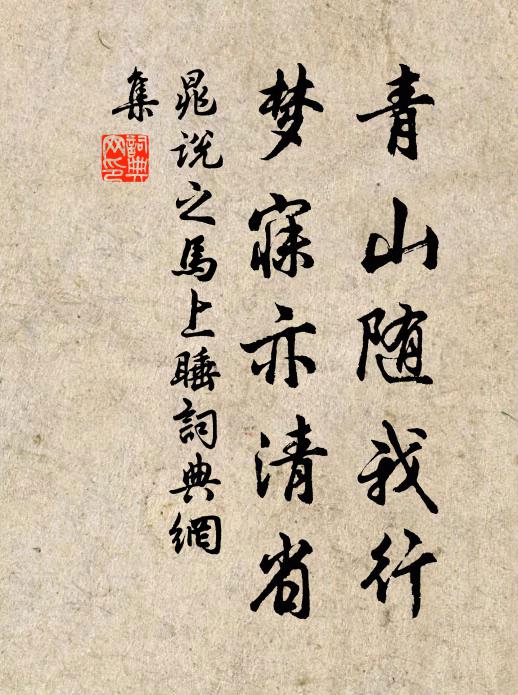 青山随我行
梦寐亦清省
晁说之馬上睡詞典網
集
詞典网印